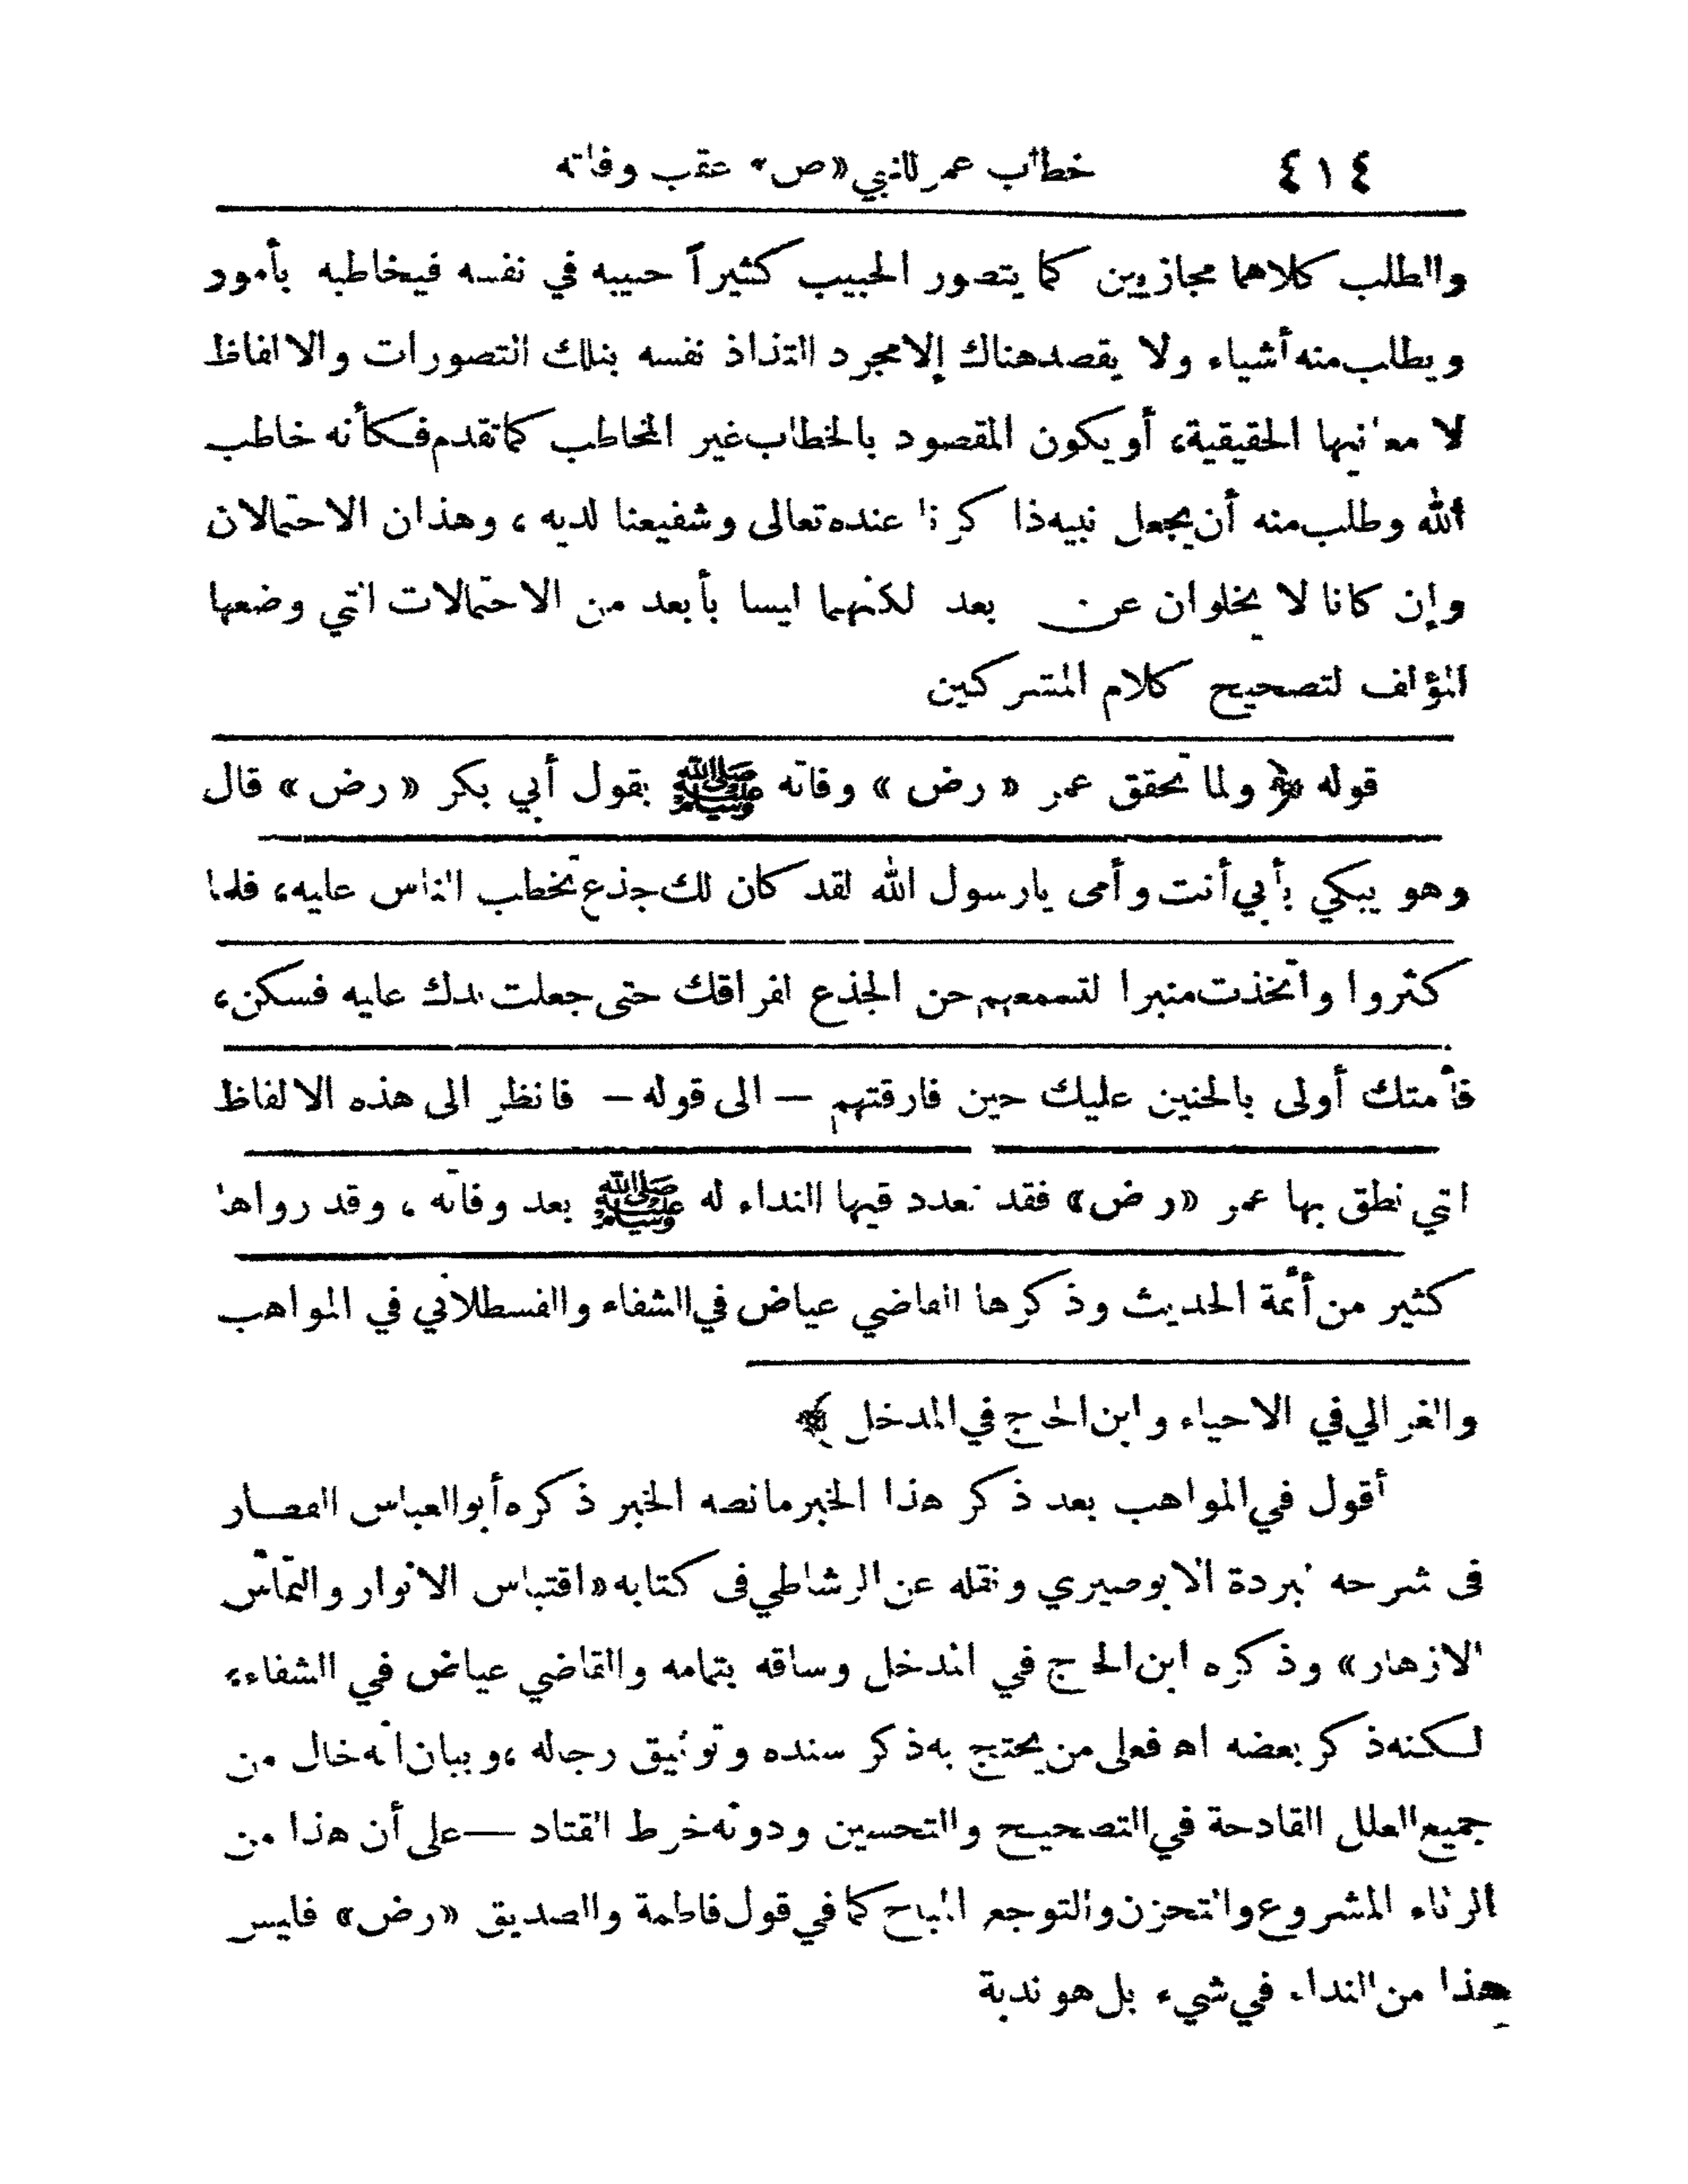 ٤١٤ خطاب عمر للنبي «ص» عقب وفاته
والطلب كلاهما مجازيين كما يتصور الحبيب كثيراً حبيبه في نفسه فيخاطبه بأمور
ويطلب منه أشياء ولا يقصد هناك إلا مجرد التذاذ نفسه بتلك التصورات والالفاظ
لا معانيها الحقيقية، أو يكون المقصود بالخطاب غير المخاطب كما تقدم فكأنه خاطب
الله وطلب منه أن يجعل نبيه ذا كرنا عنده تعالى وشفيعنا لديه ، وهذان الاحتمالان
وإن كانا لا يخلوان عن بعد لكنهما ليسا بأبعد من الاحتمالات التي وضعها
المؤلف لتصحيح كلام المشركين
قوله ﴿ ولما تحقق عمر « رض » وفاته ﷺ بقول أبي بكر « رض » قال
وهو يبكي بأبي أنت وأمى يارسول الله لقد كان لك جذع تخطب الناس عليه، فلما
كثروا واتخذت منبرا لتسمعهم حن الجذع لفراقك حتى جعلت يدك عليه فسكن،
فأمتك أولى بالحنين عليك حين فارقتهم — الى قوله — فانظر الى هذه الالفاظ
التي نطق بها عمر «رض» فقد تعدد فيها النداء له ﷺ بعد وفاته ، وقد رواها
كثير من أئمة الحديث وذكرها القاضي عياض في الشفاء والقسطلاني في المواهب
والغزالي في الاحياء وابن الحاج في المدخل ﴾
أقول في المواهب بعد ذكر هذا الخبر مانصه الخبر ذكره أبو العباس القصار
فى شرحه لبردة الابوصيري ونقله عن الرشاطي فى كتابه «اقتباس الانوار والتماس
الازهار» وذكره ابن الحاج في المدخل وساقه بتمامه والقاضي عياض في الشفاء،
لكنه ذكر بعضه اه فعلى من يحتج به ذكر سنده وتوثيق رجاله ،وبيان انه خال من
جميع العلل القادحة في التصحيح والتحسين ودونه خرط القتاد —على أن هذا من
الرثاء المشروع والتحزن والتوجع المباح كما في قول فاطمة والصديق «رض» فليس
هذا من النداء في شيء بل هو ندبة